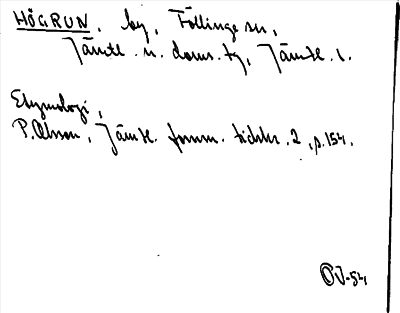 HÖGRUN, by, Föllinge sn,
Jämtl. n. doms. tg, Jämtl. l.
Etymologi,
P. Olsson, Jämtl. fornm. tidskr. 2, p. 154.
OJ-54